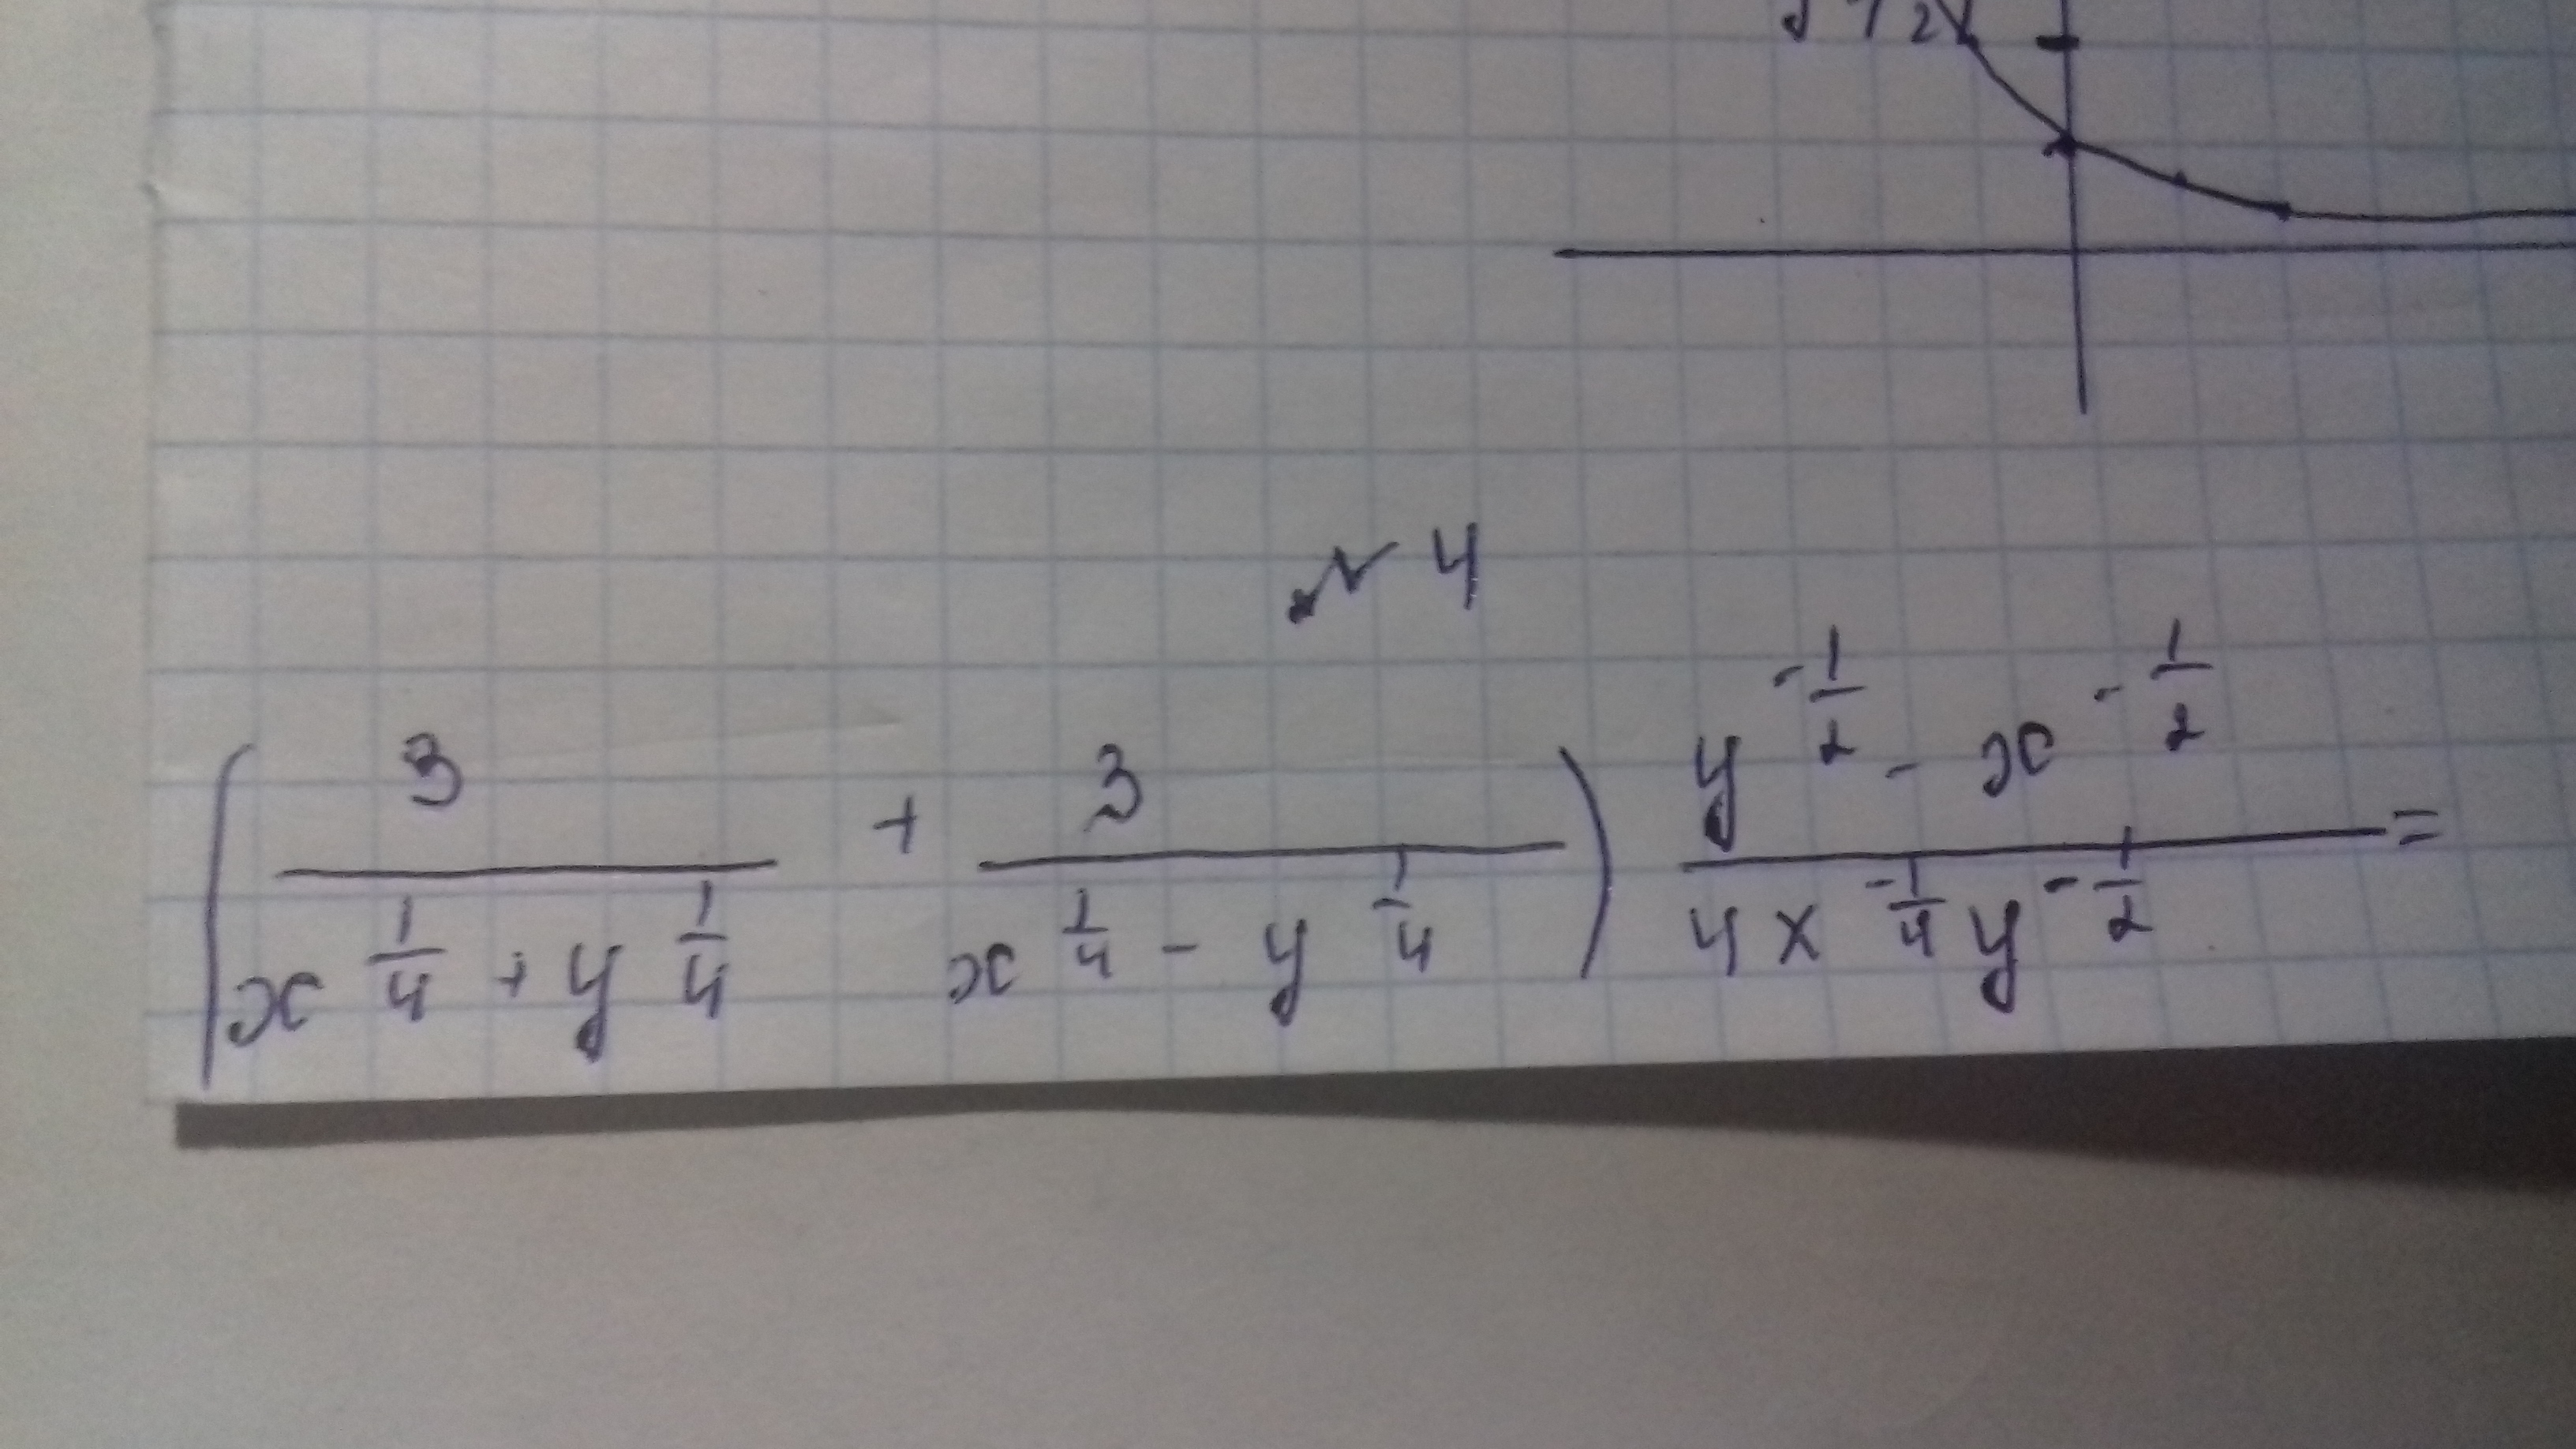 № 4
(3/(x^(1/4) + y^(1/4)) + 3/(x^(1/4) - y^(1/4))) (y^(-1/2) - x^(-1/2))/(4x^(-1/4) y^(-1/2)) =